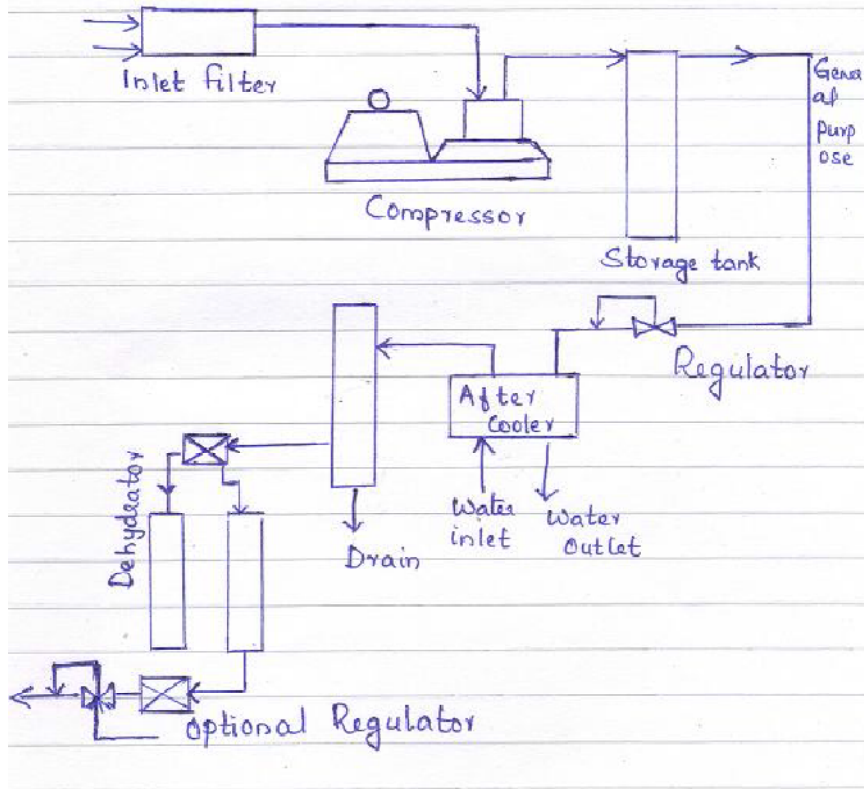 Inlet filter
Compressor
Genər
al
purp
ose
Storage tank
Regulator
After
Cooler
Water
inlet
Water
Outlet
Drain
Dehydrator
Optional Regulator